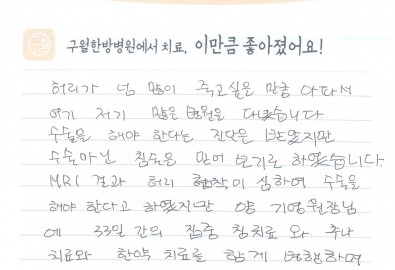 구월한방병원에서 치료, 이만큼 좋아졌어요!
허리가 넘 많이 죽고싶은 만큼 아파서
여기 저기 많은 병원을 다녔습니다
수술을 해야 한다는 진단은 받았지만
수술아닌 침술을 받어 보기로 하였습니다.
MRI 결과 허리 협착이 심하여 수술을
해야 한다고 하였지만 양 기영원장님
에 33일 간의 집중 침치료 와 추나
치료와 한약 치료를 함께 병행하며